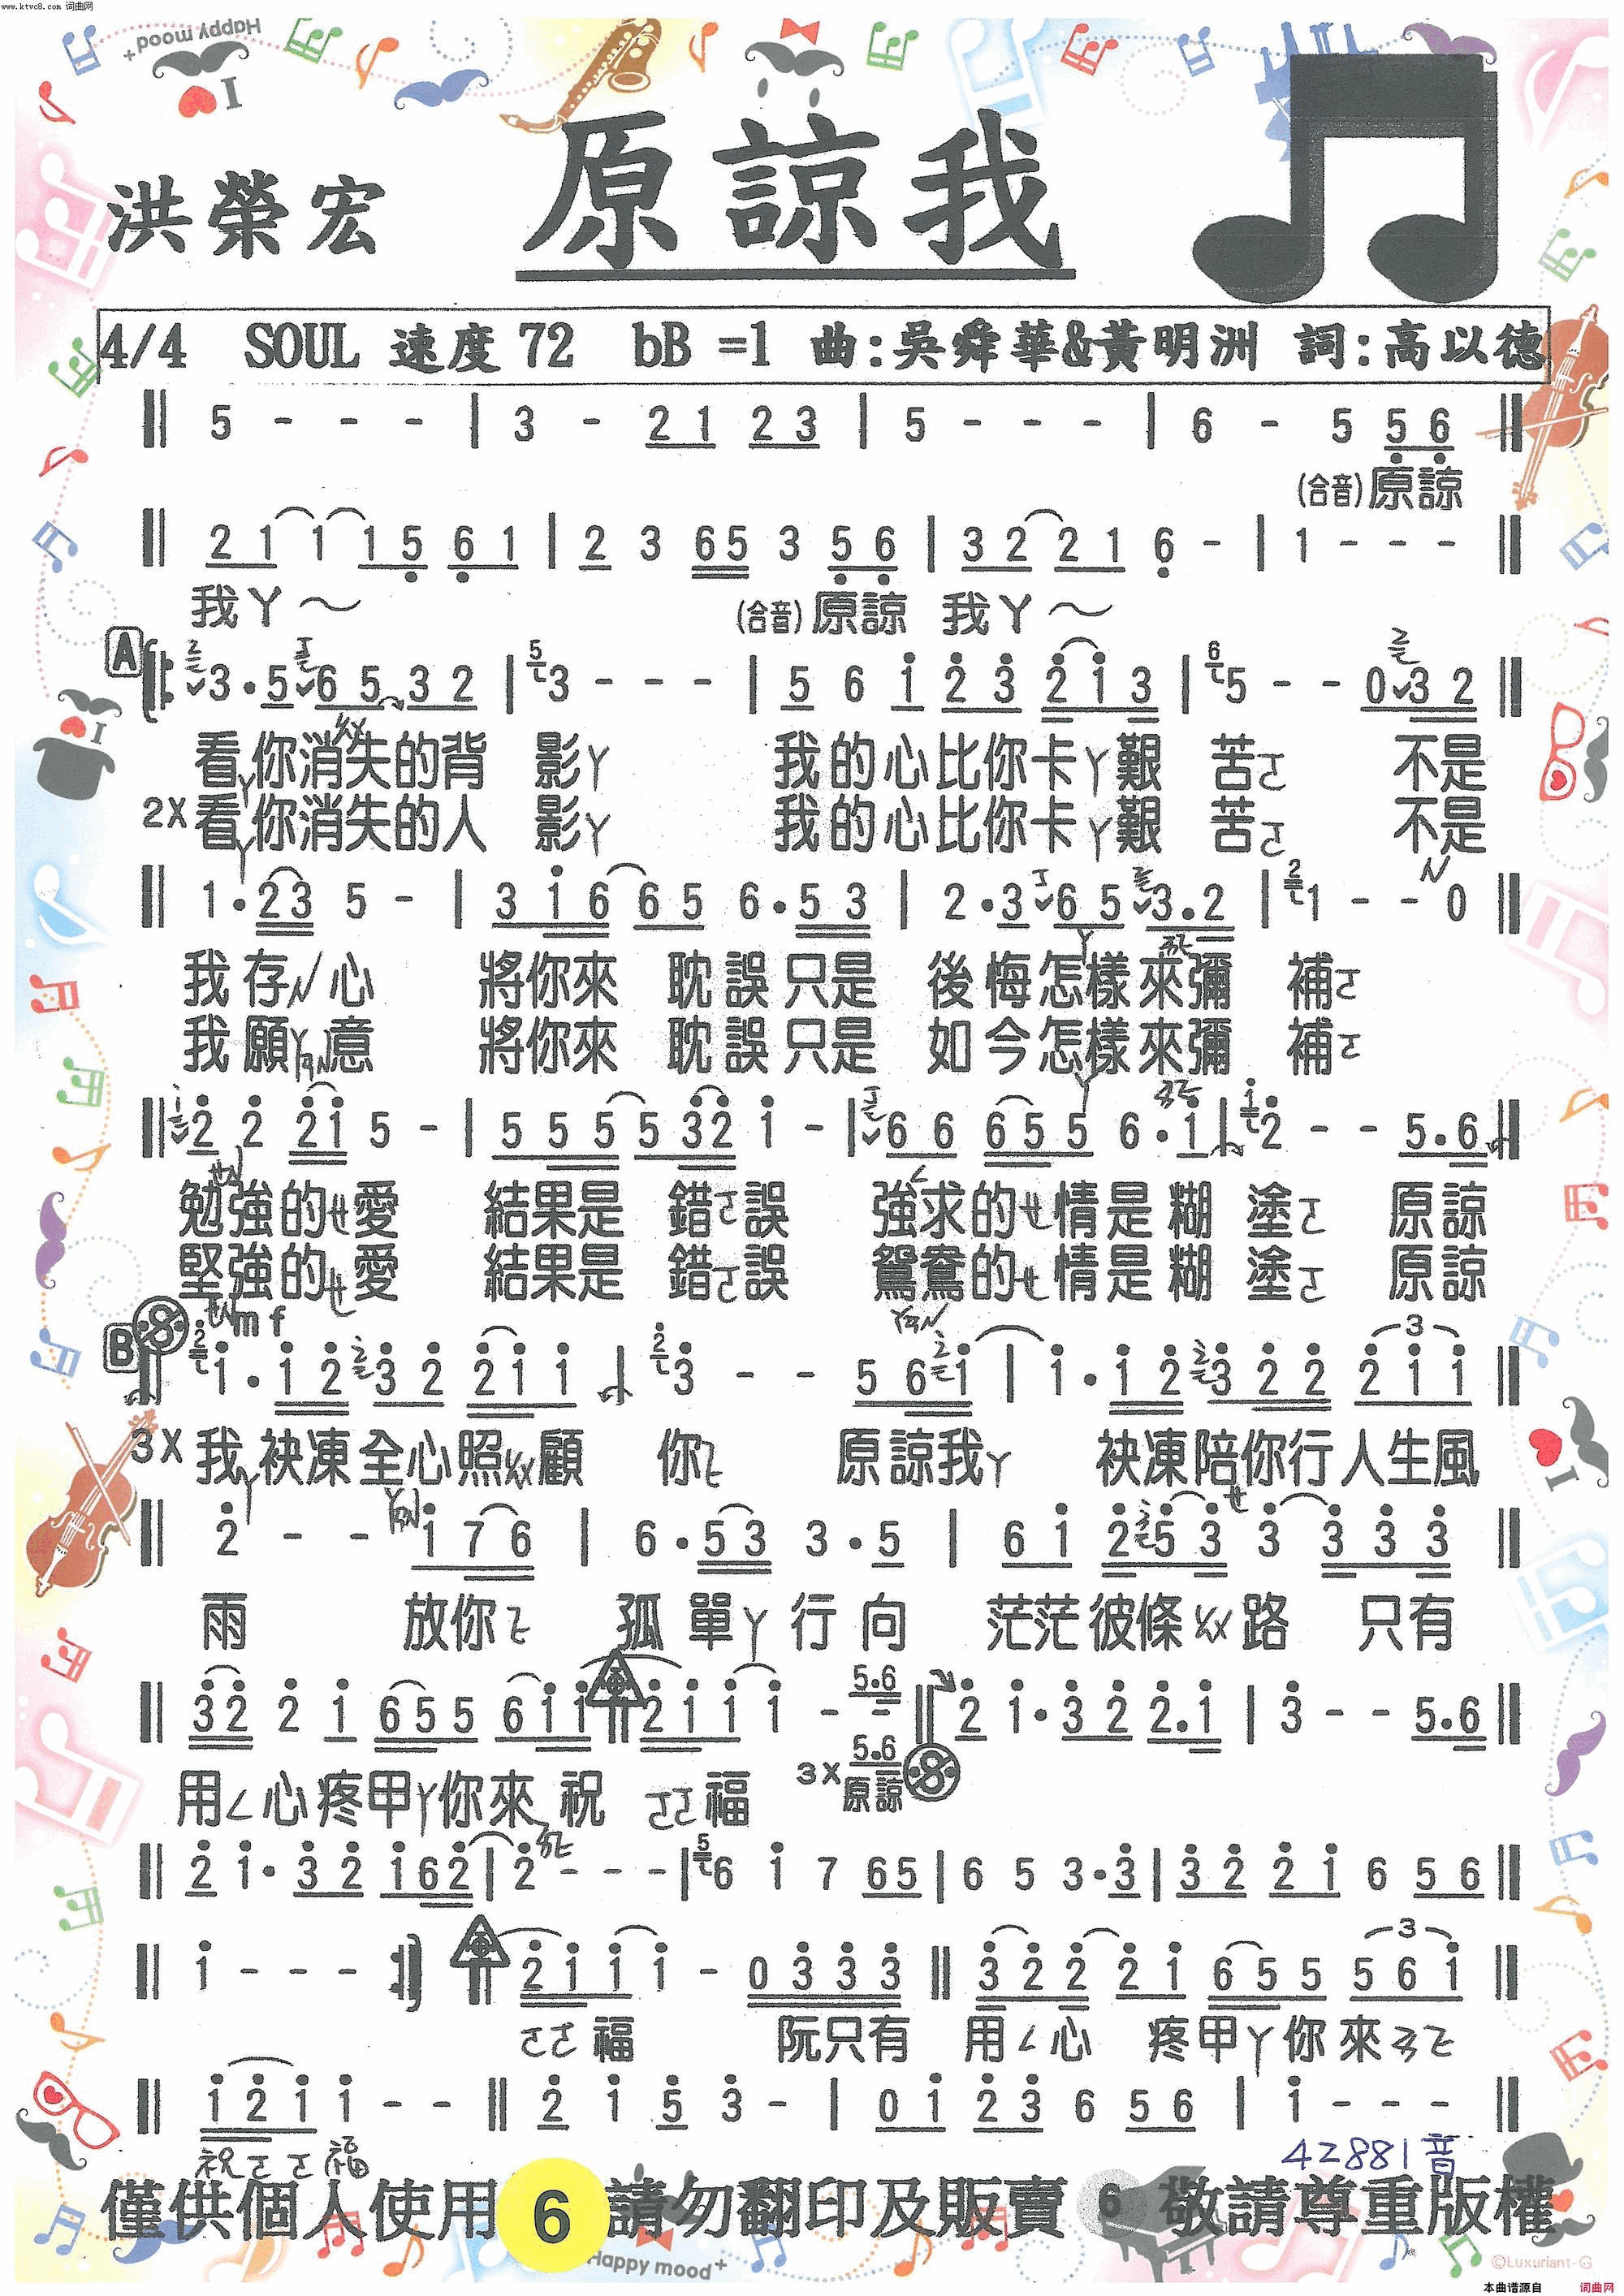 www.ktvc8.com 词曲网
Happy mood+
I
原諒我
洪榮宏
4/4 SOUL 速度 72 bB =1 曲:吳舜華&黃明洲 詞:高以德
‖ 5 - - - | 3 - 2 1 2 3 | 5 - - - | 6 - 5 5 6 ‖
(合音)原諒
‖ 2 1 1 1 5 6 1 | 2 3 65 3 5 6 | 3 2 2 1 6 - | 1 - - - ‖
我ㄚ～ (合音)原諒 我ㄚ～
A
3 . 5 6 5 3 2 | 3 - - - | 5 6 1 2 3 2 1 3 | 5 - - 0 3 2 ‖
看你消失的背 影ㄚ 我的心比你卡ㄚ艱 苦ㄛ 不是
2X 看你消失的人 影ㄚ 我的心比你卡ㄚ艱 苦ㄛ 不是
‖ 1 . 2 3 5 - | 3 1 6 6 5 6 . 5 3 | 2 . 3 6 5 3 . 2 | 1 - - 0 ‖
我存ㄣ心 將你來 耽誤只是 後悔怎樣來彌 補ㄛ
我願 意 將你來 耽誤只是 如今怎樣來彌 補ㄛ
‖ 2 2 2 1 5 - | 5 5 5 5 3 2 1 - | 6 6 6 5 5 6 . 1 | 2 - - 5 . 6 ‖
勉強的ㄝ愛 結果是 錯ㄛ誤 強求的ㄝ情是糊 塗ㄛ 原諒
堅強的ㄝ愛 結果是 錯ㄛ誤 鴛鴦的ㄝ情是糊 塗ㄛ 原諒
B mf
1 . 1 2 3 2 2 1 1 | 3 - - 5 6 1 | 1 . 1 2 3 2 2 2 1 1 ‖
3X 我袂凍全心照ㄍㄨ顧 你 原諒我ㄚ 袂凍陪你行人生風
‖ 2 - - 1 7 6 | 6 . 5 3 3 . 5 | 6 1 2 5 3 3 3 3 3 ‖
雨 放你 孤單ㄚ行向 茫茫彼條 路 只有
‖ 3 2 2 1 6 5 5 6 1 1 ‖ 2 1 1 1 - - 5.6 ‖ 2 1 . 3 2 2 . 1 | 3 - - 5 . 6 ‖
用ㄑ心疼甲ㄚ你來 祝 ㄛㄛ福 3X 5.6 原諒
‖ 2 1 . 3 2 1 6 2 | 2 - - - | 6 1 7 65 | 6 5 3 . 3 | 3 2 2 1 6 5 6 ‖
‖ 1 - - - 2 1 1 1 - 0 3 3 3 ‖ 3 2 2 2 1 6 5 5 5 6 1 ‖
ㄛㄛ福 阮只有 用ㄑ心 疼甲ㄚ你來
‖ 1 2 1 1 - - ‖ 2 1 5 3 - | 0 1 2 3 6 5 6 | 1 - - - ‖
祝ㄛㄛ福
42881音
僅供個人使用 6 請勿翻印及販賣 6 敬請尊重版權
Happy mood+
©Luxuriant-G
本曲谱源自 词曲网